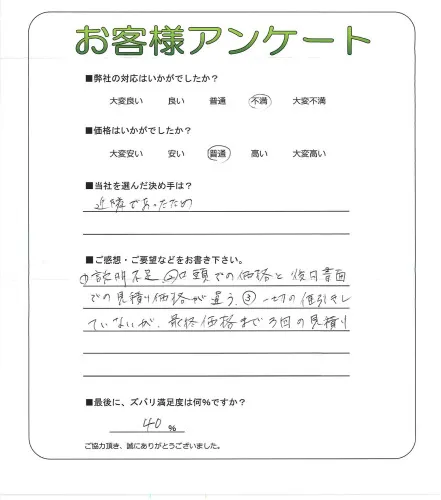 お客様アンケート
■弊社の対応はいかがでしたか?
大変良い 良い 普通 不満 大変不満
■価格はいかがでしたか?
大変安い 安い 普通 高い 大変高い
■当社を選んだ決め手は?
近隣であったため
■ご感想・ご要望などをお書き下さい。
①説明不足 ②口頭での価格と後日書面
での見積り価格が違う ③一切の値引きをし
ていないが、最終価格まで3回の見積り
■最後に、ズバリ満足度は何%ですか?
40 %
ご協力頂き、誠にありがとうございました。